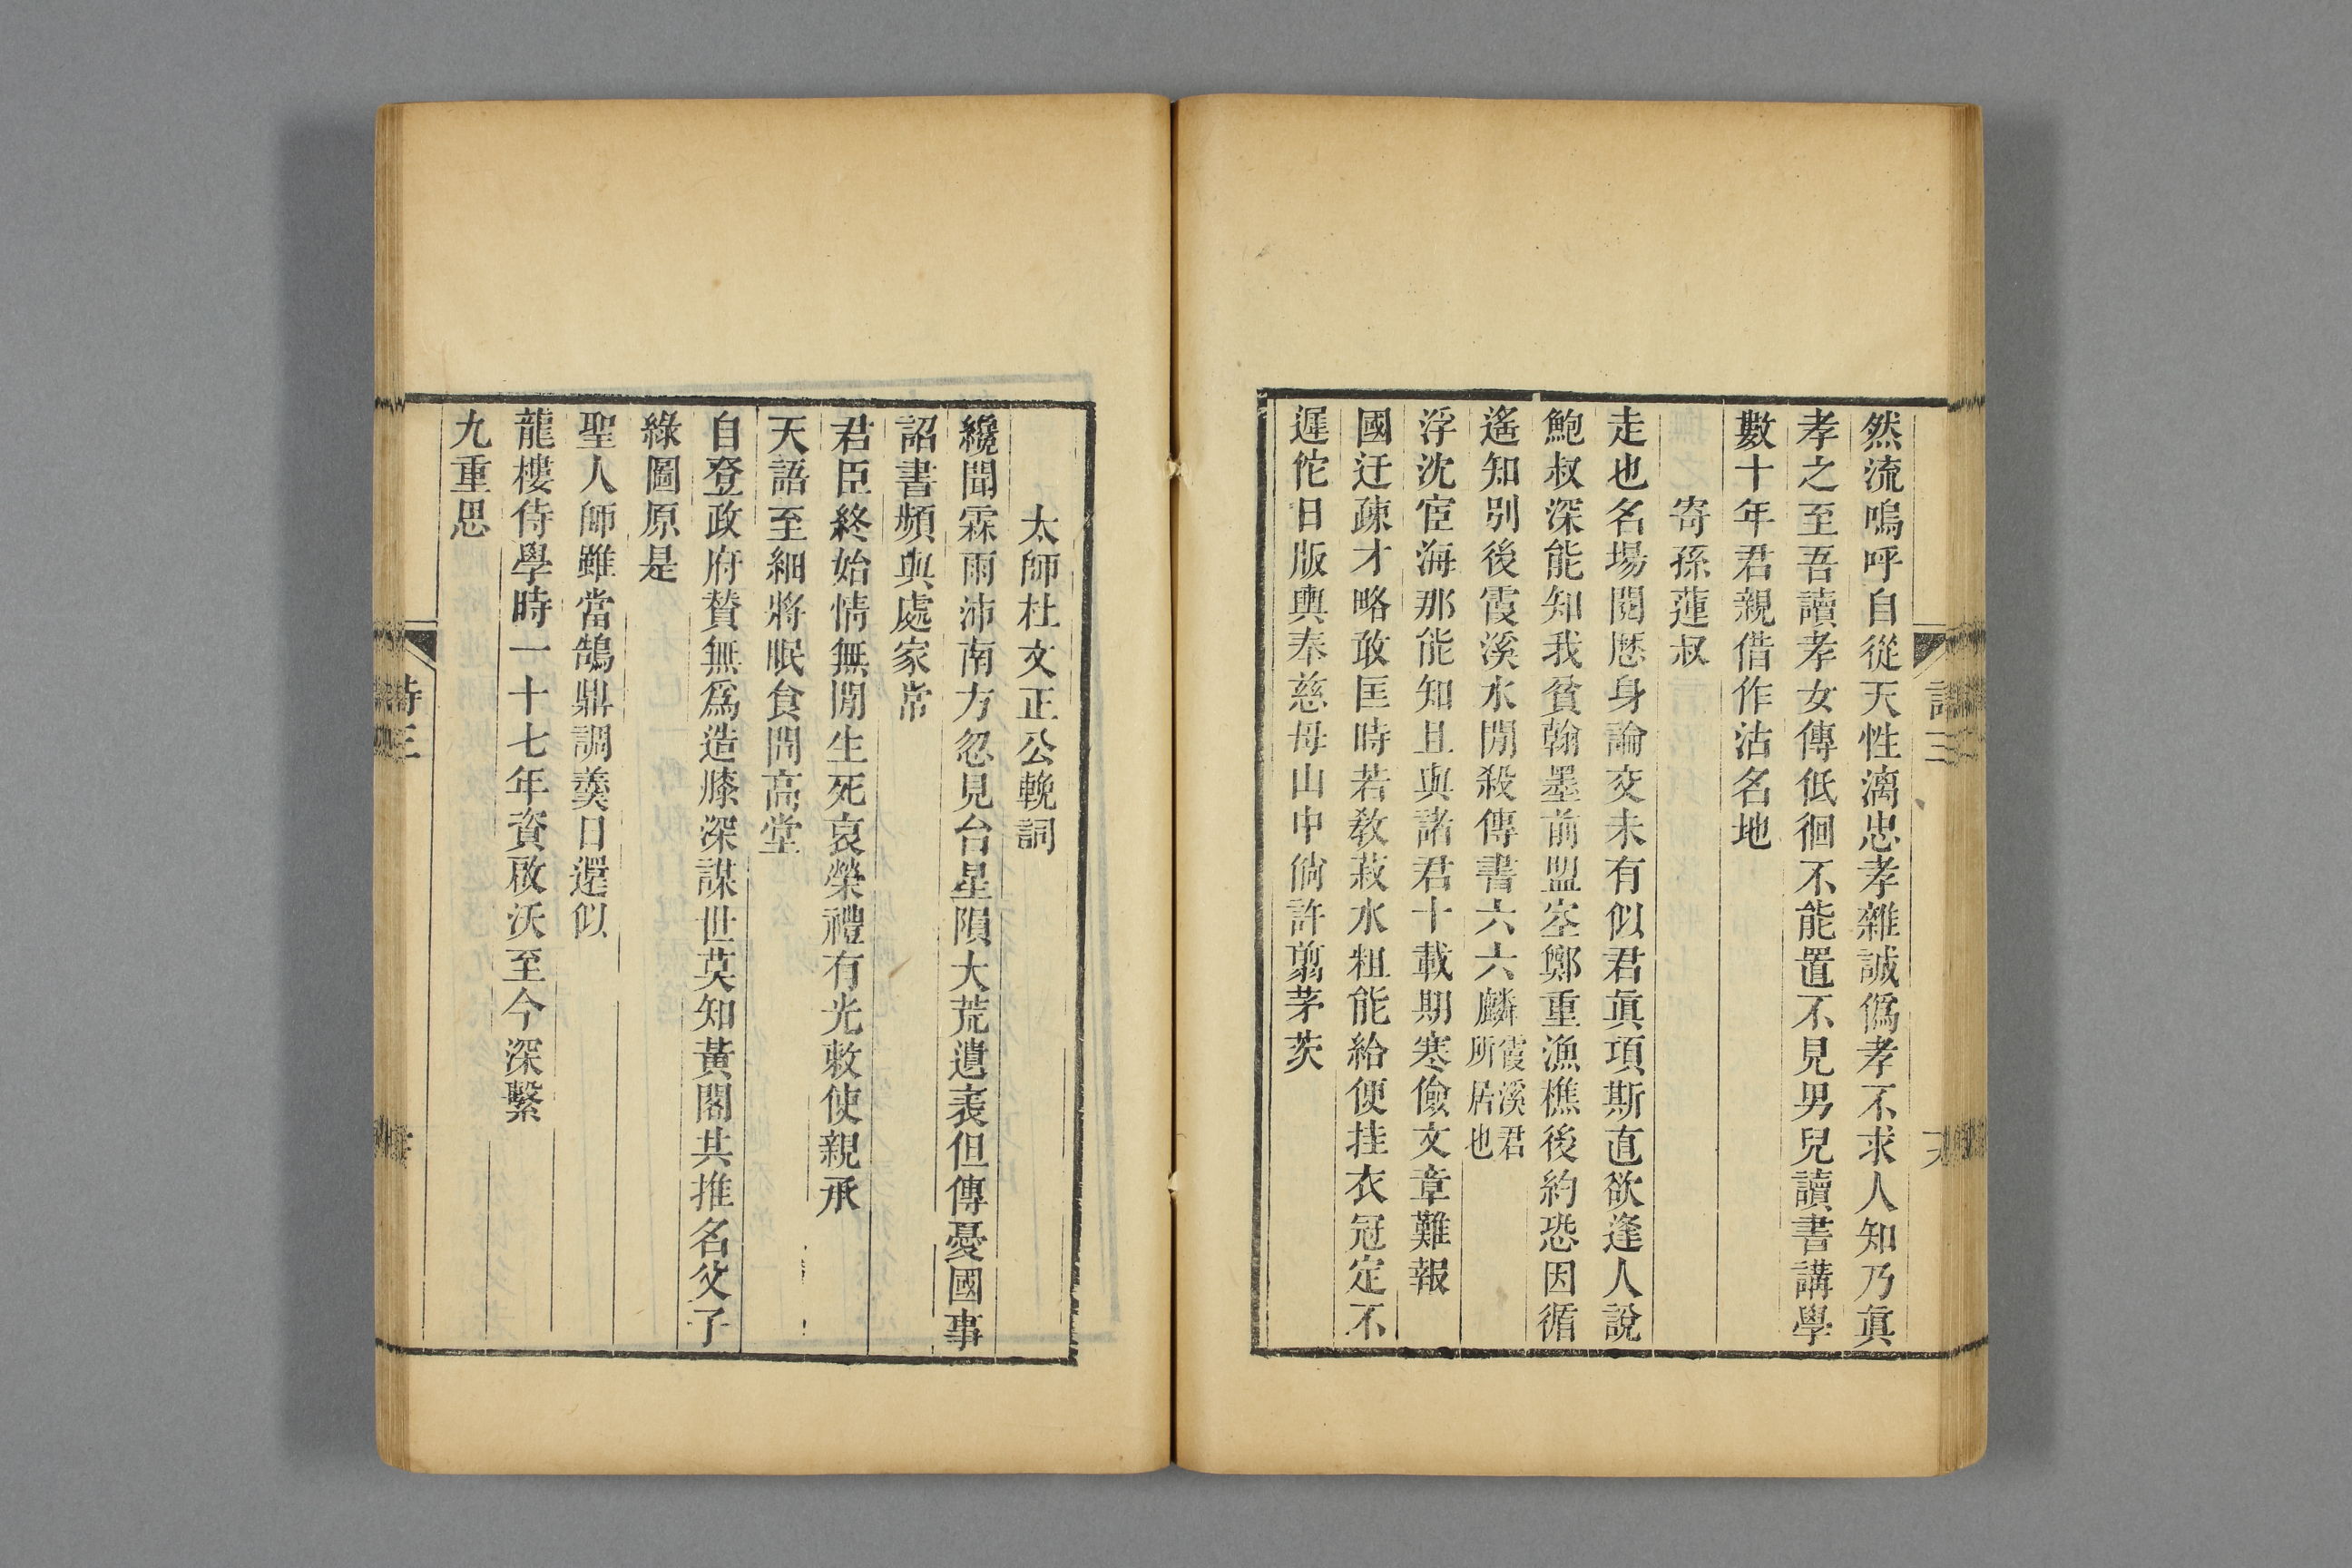 然流嗚呼自從天性漓忠孝雜誠僞孝不求人知乃眞
孝之至吾讀孝女傳低徊不能置不見男兒讀書講學
數十年君親借作沽名地
寄孫蓮叔
走也名場閱歷身論交未有似君眞項斯直欲逢人說
鮑叔深能知我貧翰墨前盟空鄭重漁樵後約恐因循
遙知別後霞溪水閒殺傳書六六麟霞溪君所居也
浮沈宦海那能知且與諸君十載期寒儉文章難報
國迂疎才略敢匡時若敎菽水粗能給便挂衣冠定不
遲佗日版輿奉慈母山中倘許翦茅茨
太師杜文正公輓詞
纔聞霖雨沛南方忽見台星隕大荒遺表但傳憂國事
詔書頻與處家常
君臣終始情無閒生死哀榮禮有光敕使親承
天語至細將眠食問高堂
自登政府贊無爲造膝深謀世莫知黃閣共推名父子
綠圖原是
聖人師雖當鵠鼎調羹日還似
龍樓侍學時一十七年資啟沃至今深繫
九重思
詩三